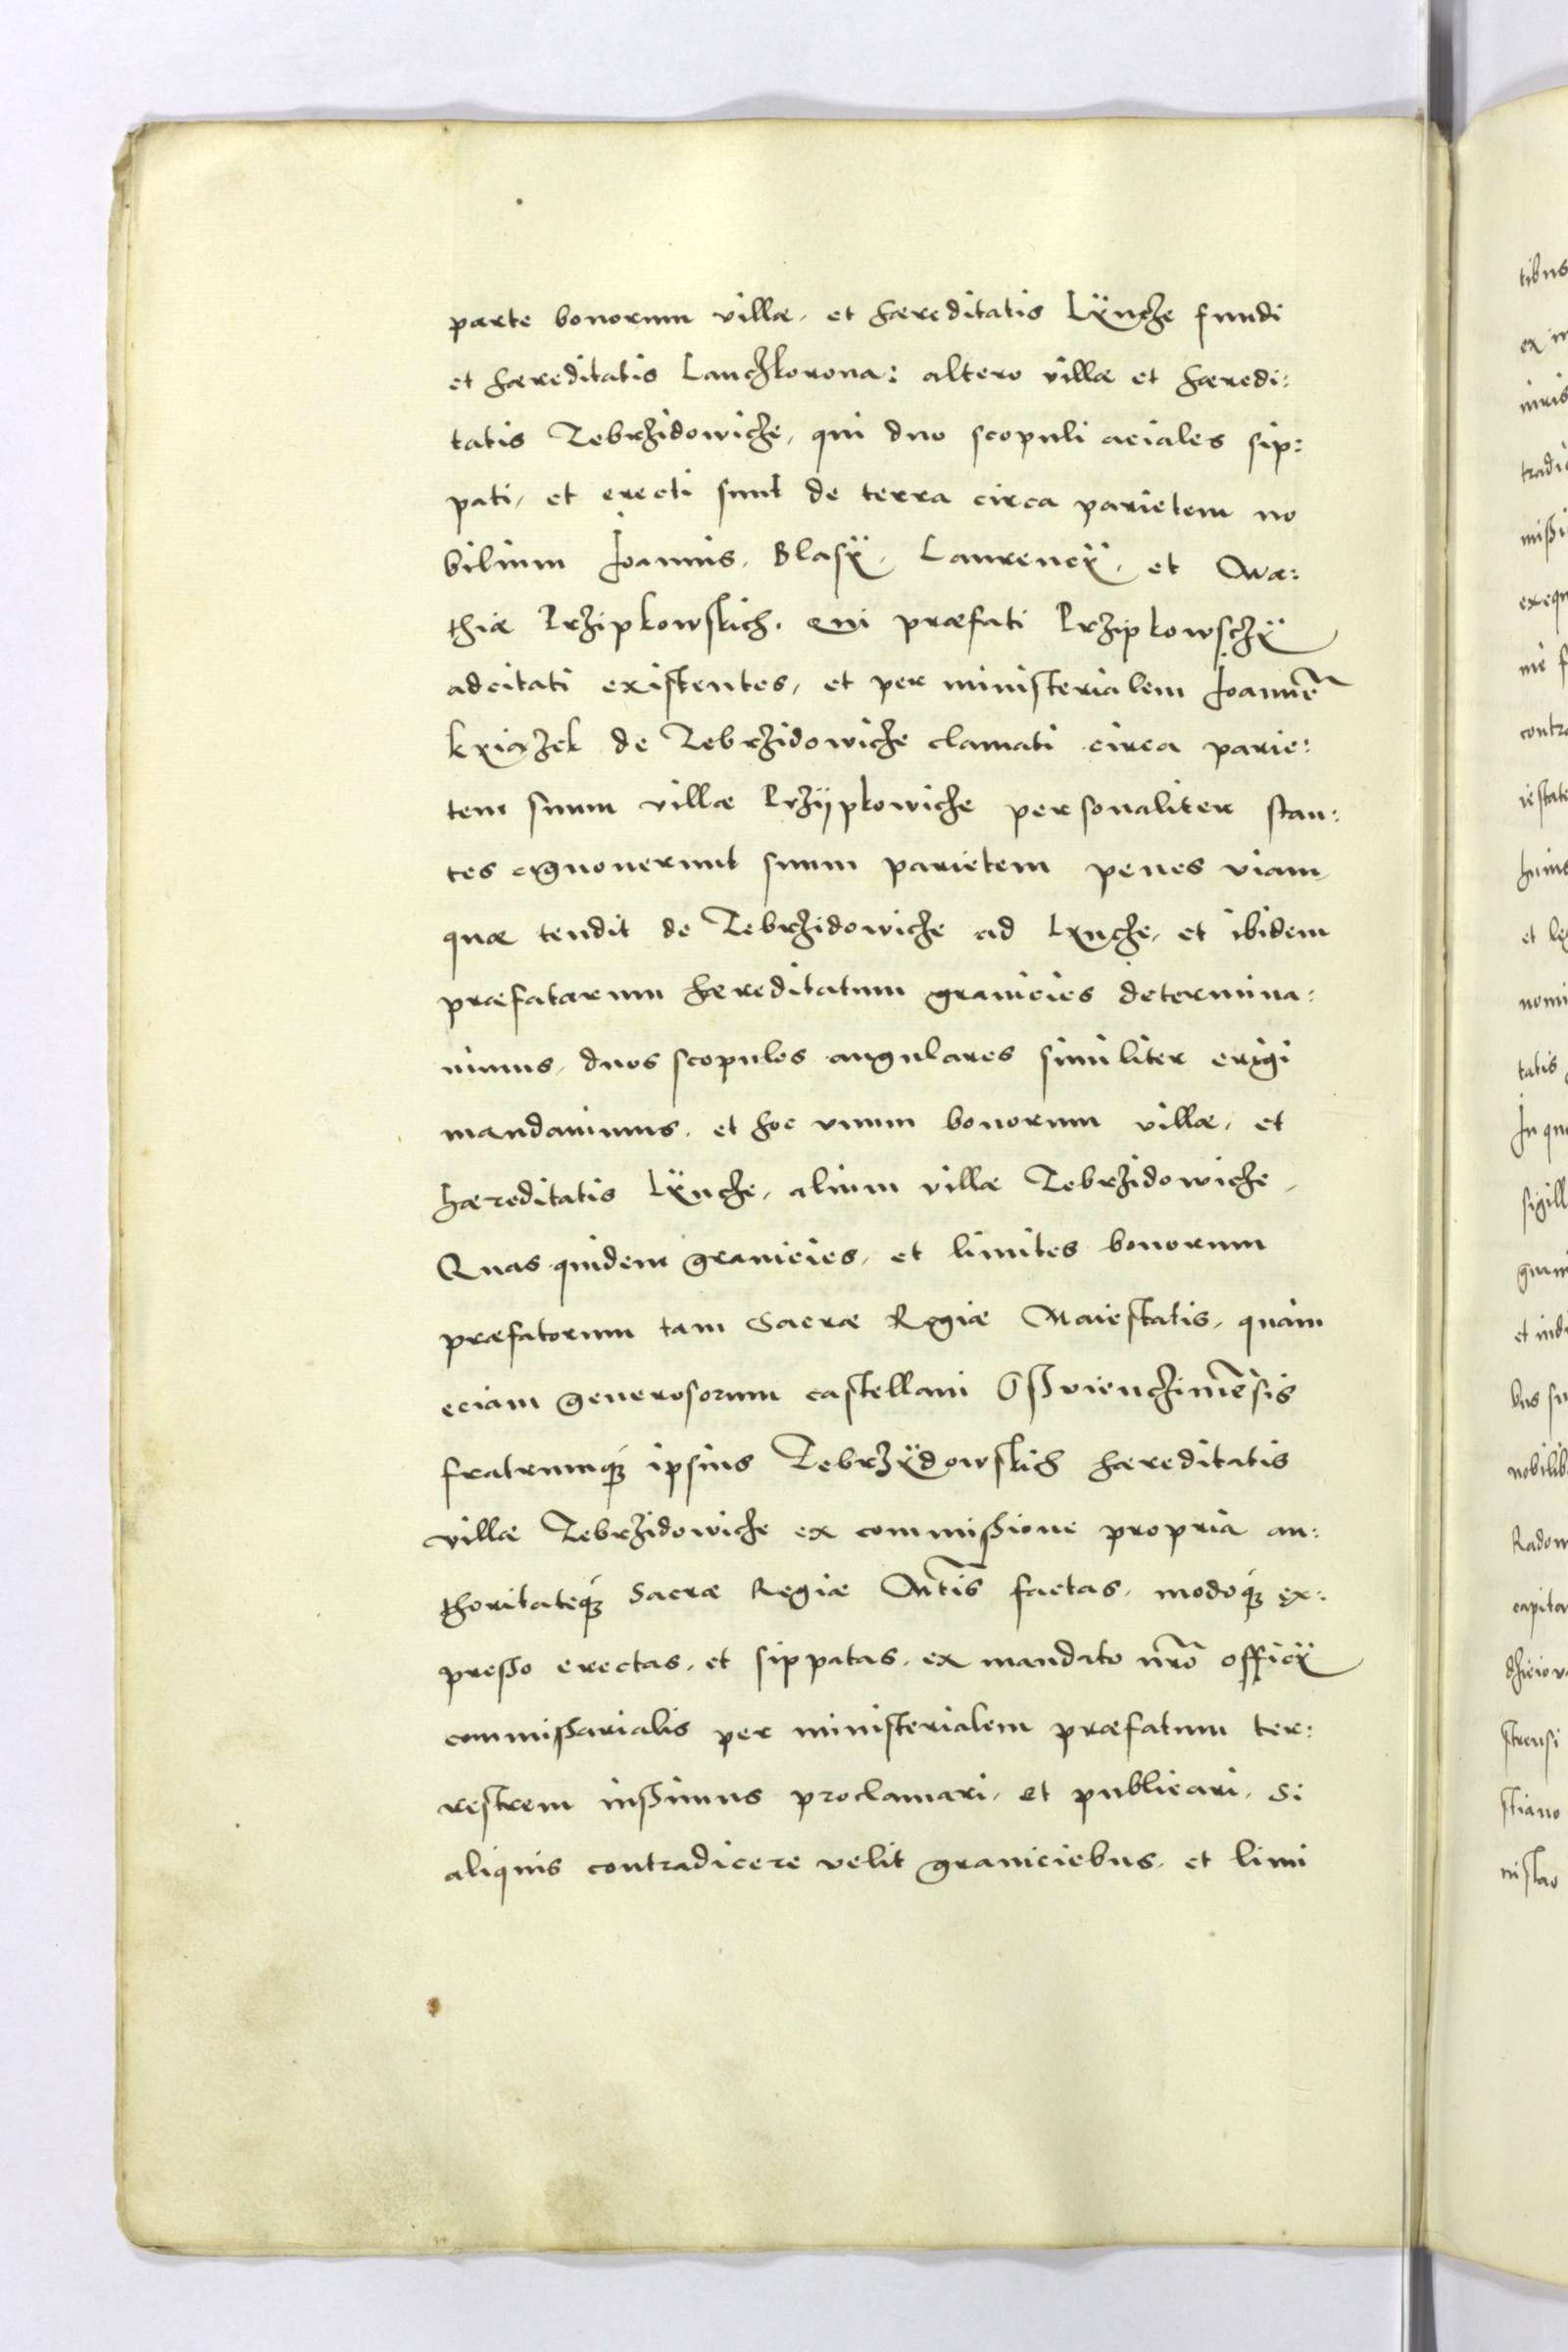 parte bonorum villæ, et hæreditatis Lÿncze fundi
et hæreditatis Lanczkorona: altero villæ et hæredi:
tatis Zebrzidowicze, qui duo scopuli aciales sip:
pati, et erecti sunt de terra circa parietem no
bilium Joannis, Blasÿ, Laurencÿ, et Ma:
thiæ Przipkowskich. Qui præfati Przipkowsczÿ
adcitati existentes, et per ministerialem Joannē
kxiazek de Zebrzidowicze clamati circa parie:
tem suum villæ Przÿpkowicze personaliter stan:
tes cognouerunt suum parietem penes viam,
quæ tendit de Zebrzidowicze ad Lyncze, et ibidem
præfatarum hæreditatum granicies determina:
uimus, duos scopulos angulares similiter erigi
mandauimus, et hoc vnum bonorum villæ, et
hæreditatis Lÿncze, alium villæ Zebrzidowicze,
Quas quidem granicies, et limites bonorum
præfatorum tam Sacræ Regiæ Maiestatis, quàm
eciam generosorum castellani Osswienczimēsis
fratrumq́ȝ ipsius Zebrzÿdowskich hæreditatis
villæ Zebrzidowicze ex commissione propria au:
thoritateq́ȝ Sacræ Regiæ Mtis̄ factas, modoq́ȝ ex:
presso erectas, et sippatas, ex mandato nr̄o officÿ
commissarialis per ministerialem præfatum ter:
restrem iussimus proclamari, et publicari, Si
aliquis contradicere velit graniciebus, et limi
tibus
ex
iuris
tradi
missi
exequ
contra
huius
et
nomi
tatis
In qu
sigill
et indi
bus su
nobilib
Radow
capita
strensi
stiano